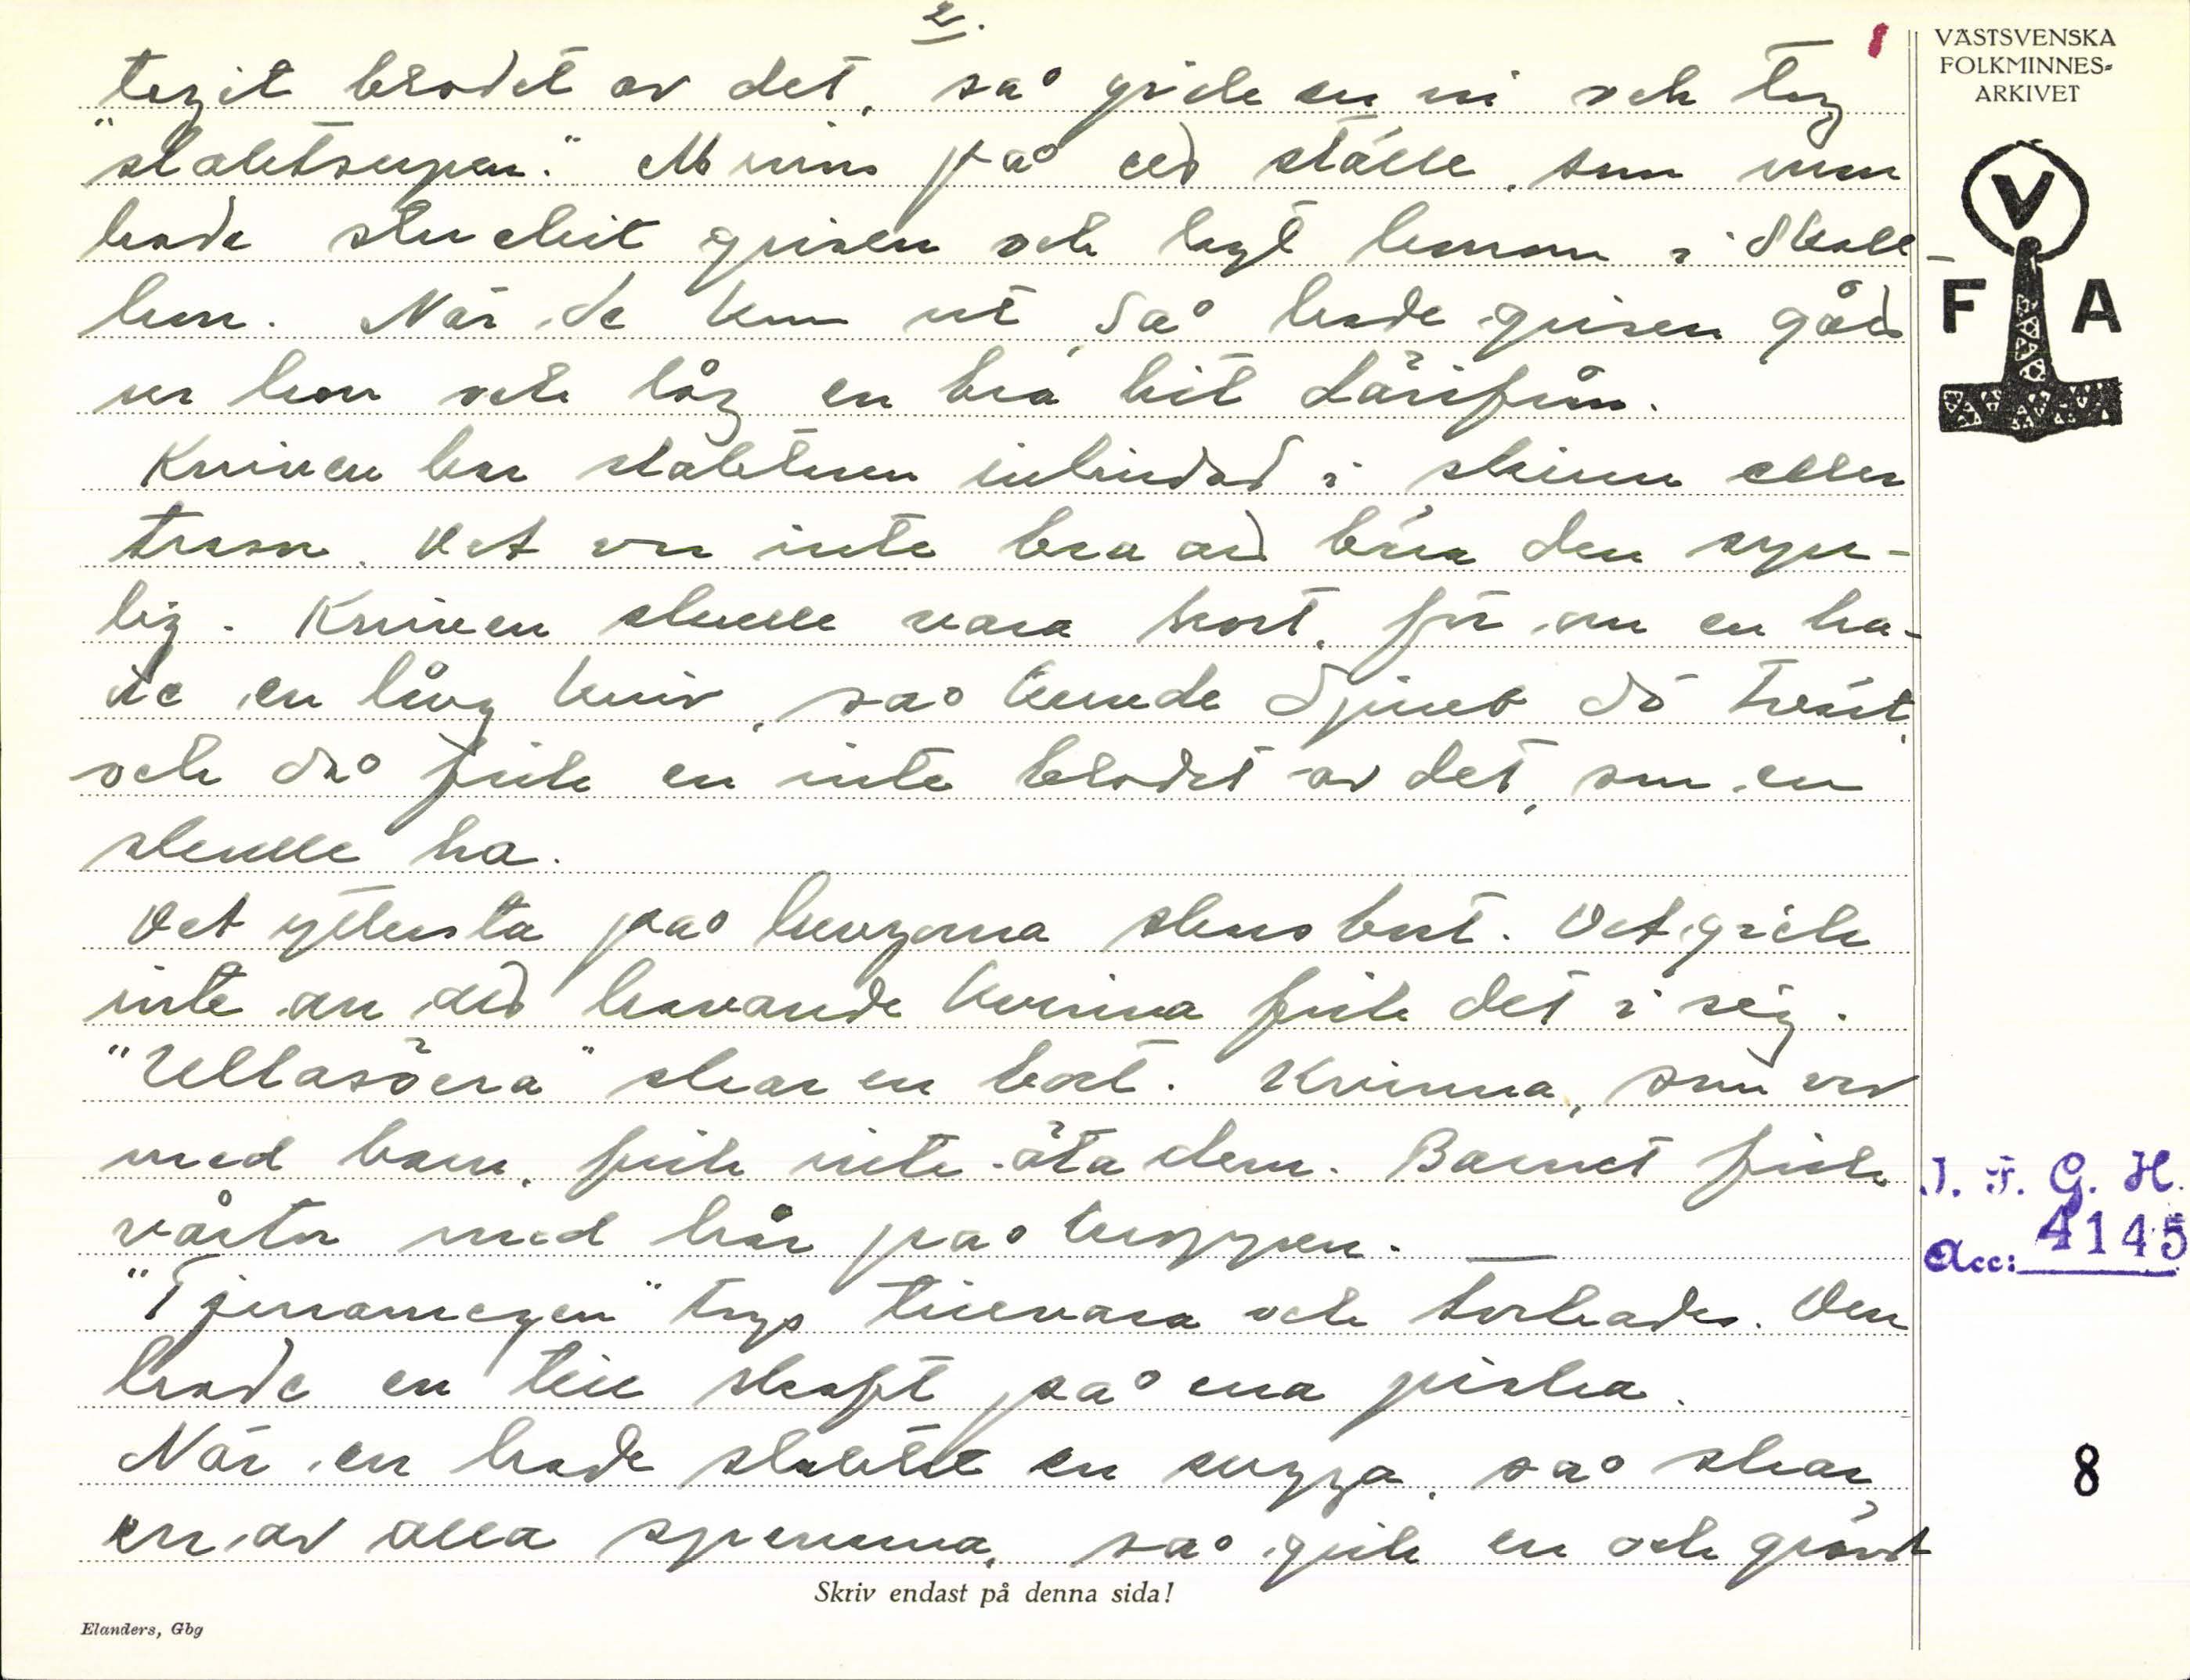 2.
8
tagit blodet av det, så gick en in och tog
"slaktsupen." Minns på ett ställe, som man
hade stuckit grisen och lagt honom i skåll-
hon. När de kom ut, så hade grisen gått
ur hon och låg en bra bit därifrån.
Kniven bar slaktaren inlindad i skinn eller
trasa. Det var inte bra att bära den syn-
lig. Kniven skulle vara kort, för om en ha-
de en lång kniv, så kunde djuret dö tvärt,
och då fick en inte blodet av det, som en
skulle ha.
Det yttersta på lungorna skars bort. Det gick
inte an att havande kvinna fick det i sig.
"Ullasöera" skar en bort. Kvinna, som var
med barn, fick inte äta dem. Barnet fick
vårtor med hår på kroppen. —
"Tjuramagen" togs tillvara och torkades. Den
hade en till skaft på ena piska.
När en hade slaktat en sugga, så skar
en av alla spenarna, så gick en och grävt
Skriv endast på denna sida!
Elanders, Gbg
VÄSTSVENSKA
FOLKMINNES-
ARKIVET
V
F A
I. F. G. H.
Acc: 4145
8